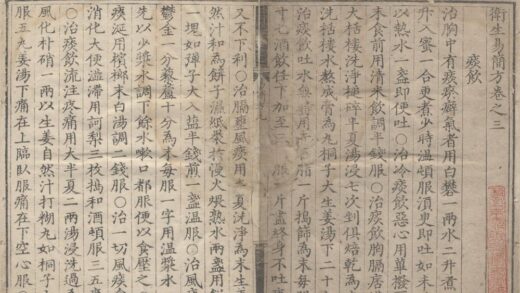 衛生易簡方卷之三
痰飲
治胸中有痰癖氣者用白礬一兩水二升煮
升入蜜一合更煮少時溫頓服須臾即吐如未
以熱水一盞即便吐○治冷痰飲惡心用蓽撥
末食前用清米飲調半錢服○治痰飲胸膈居
大栝樓洗淨捶碎半夏湯浸七次剉俱焙乾為
洗栝樓水熬成膏為丸桐子大生薑湯下二十
治痰飲吐水無時 一斤搗篩為末每服
十丸酒飲任下加至 服一斤盡終身不吐
又不下利○治膈壅風痰用 夏洗淨為末生
然汁和為餅子濕紙裹於慢火煨熟水兩盞用
一塊如彈子大入鹽半錢煎一盞溫服○治風
鬱金一分藜蘆十分為末每服一字用溫漿水
先以少漿水調下餘水嗽口都服便以食壓之
痰涎用檳榔末白湯調二錢服○治一切風痰
消化大便澁滯用訶梨三枚搗和酒頓服三五
○治痰飲流注疼痛用大半夏二兩湯浸洗過
風化朴硝一兩以生薑自然汁打糊丸如桐子
服五丸薑湯下痛在上臨臥服痛在下空心服